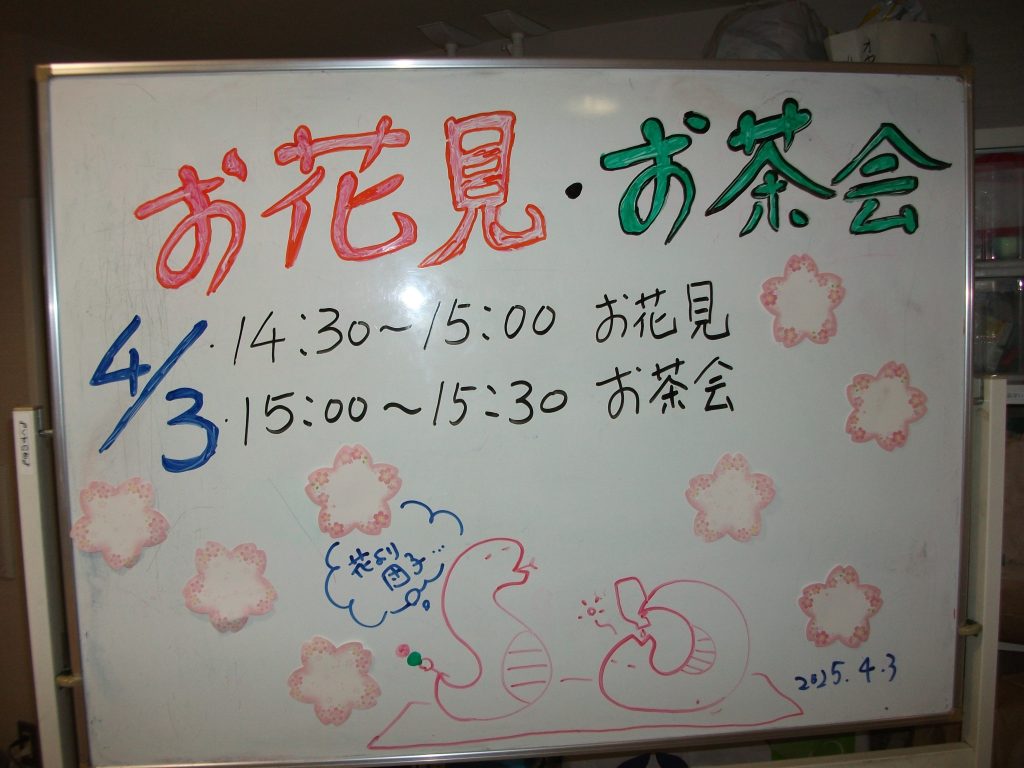 お花見・お茶会
4/3
・14:30～15:00 お花見
・15:00～15:30 お茶会
花より
団子…
2025.4.3